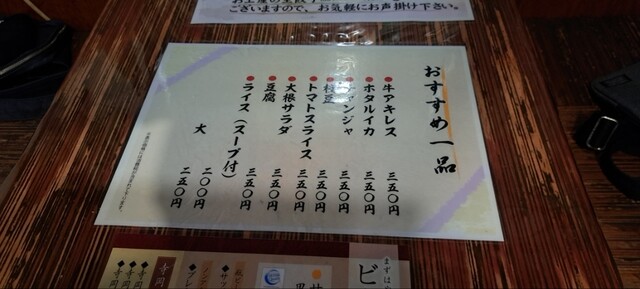 ございますので、お気軽にお声掛け下さい。
おすすめ一品
牛アキレス 三五〇円
ホタルイカ 三五〇円
チャンジャ 三五〇円
枝豆 三五〇円
トマトスライス 三五〇円
大根サラダ 三五〇円
豆腐 三五〇円
ライス(スープ付) 二〇〇円
大 二五〇円
まずは
ビ